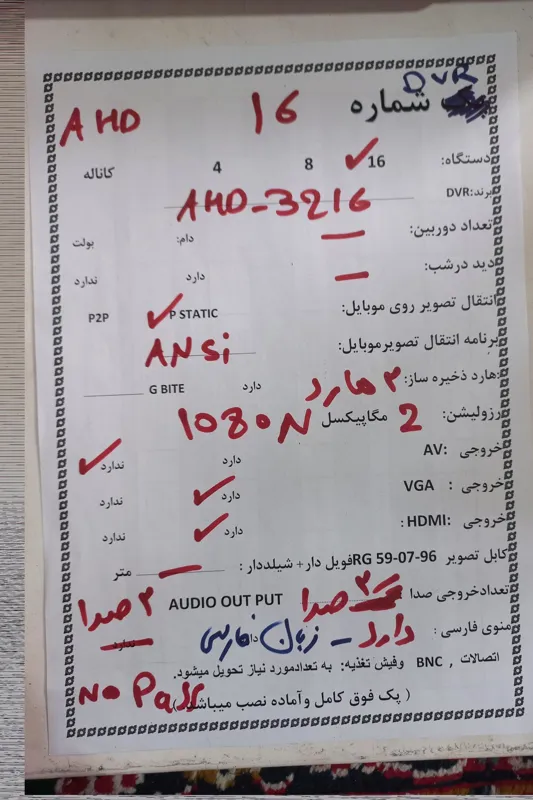 DVR
شماره 16 AHD
دستگاه: 16 ✓ 8 4 کاناله
برند:DVR AHD-3216
تعداد دوربین: — دام: بولت
دید درشب: — دارد ندارد
انتقال تصویر روی موبایل: P STATIC ✓ P2P
برنامه انتقال تصویرموبایل: ANSi
هارد ذخیره ساز: ۲ هارد دارد G BITE
رزولیشن: 2 مگاپیکسل 1080N
خروجی :AV دارد ندارد ✓
خروجی : VGA دارد ✓ ندارد
خروجی :HDMI : دارد ✓ ندارد
کابل تصویر RG 59-07-96فویل دار+ شیلددار : — متر
تعدادخروجی صدا صدا AUDIO OUT PUT ۲ صدا
منوی فارسی : دارد - زبان فارسی ندارد
اتصالات , BNC وفیش تغذیه: به تعدادمورد نیاز تحویل میشود.
( پک فوق کامل وآماده نصب میباشد ) No Pass